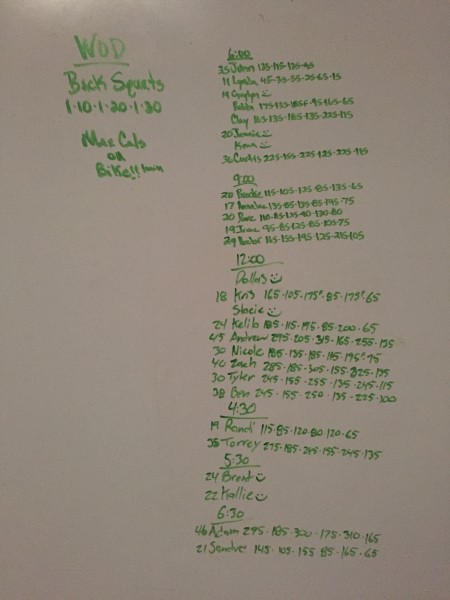 WOD
Back Squats
1·10·1·20·1·30
Max Cals
on
Bike!! 1min
6:00
35 John 125-115-135-95
11 Lynda 45-35-55-25-65-15
19
175-135-185F-95-165-65
Clay 165-135-185-135-225-115
20 Jennie
Kena
36 Curtis 225-155-225-125-225-115
9:00
20 115-105-125-85-135-65
17 135-85-135-85-145-75
20 110-85-125-90-130-80
19 Irene 95-85-125-85-105-75
29 165-155-195-125-215-105
12:00
Dollas
18 Kris 165·105·175F·85·175F·65
Stacie
24 Kelib 185·115·195·85·200·65
45 Andrew 295·205·315·165·255·135
30 Nicole 185·135·185·115·195F·75
40 Zach 285·185·305·155·325·135
30 Tyler 245·155·255·135·245·115
38 Ben 245·155·250·135·225·100
4:30
19 Randi 115·85·120·80·120·65
35 Torrey 275·185·245·155·245·135
5:30
24 Brent
22 Kallie
6:30
46 Adam 295·185·300·175·310·165
21 145·105·155·85·165·65